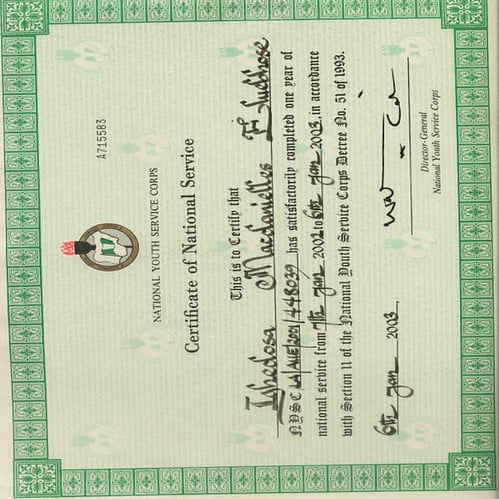 A715583
NATIONAL YOUTH SERVICE CORPS
Certificate of National Service
This is to Certify that
Ighedosa Macdanielles E.
NYSC LA/AUE/2001/448039 has satisfactorily completed one year of
national service from 7th Jan 2002 to 6th Jan 2003, in accordance
with Section 11 of the National Youth Service Corps Decree No. 51 of 1993.
6th Jan 2003
Director-General
National Youth Service Corps